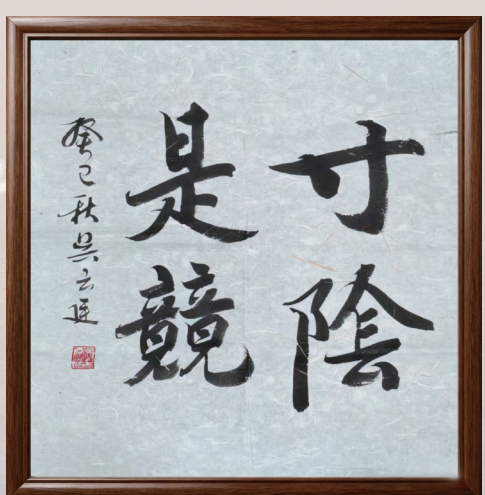 寸陰
是競
癸巳秋吳云廷